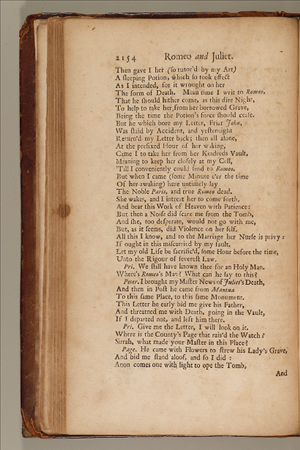 2154 Romeo and Juliet.
Then gave I her (so tutor'd by my Art)
A sleeping Potion, which so took effect
As I intended, for it wrought on her
The form of Death. Mean time I writ to Romeo,
That he should hither come, as this dire Night,
To help to take her from her borrowed Grave,
Being the time the Potion's force should cease.
But he which bore my Letter, Friar John,
Was staid by Accident, and yesternight
Return'd my Letter back; then all alone,
At the prefixed Hour of her waking,
Came I to take her from her Kindreds Vault,
Meaning to keep her closely at my Cell,
'Till I conveniently could send to Romeo.
But when I came (some Minute e'er the time
Of her awaking) here untimely lay
The Noble Paris, and true Romeo dead.
She wakes, and I intreat her to come forth,
And bear this Work of Heaven with Patience:
But then a Noise did scare me from the Tomb,
And she, too desperate, would not go with me,
But, as it seems, did Violence on her self.
All this I know, and to the Marriage her Nurse is privy:
If ought in this miscarried by my fault,
Let my old Life be sacrific'd, some Hour before the time,
Unto the Rigour of severest Law.
Pri. We still have known thee for an Holy Man.
Where's Romeo's Man? What can he say to this?
I brought my Master News of Juliet's Death,
And then in Post he came from Mantua
To this same Place, to this same Monument.
This Letter he early bid me give his Father,
And threatned me with Death, going in the Vault,
If I departed not, and left him there.
Pri. Give me the Letter, I will look on it.
Where is the County's Page that rais'd the Watch?
Sirrah, what made your Master in this Place?
Page. He came with Flowers to strew his Lady's Grave,
And bid me stand aloof, and so I did:
Anon comes one with light to ope the Tomb,
And